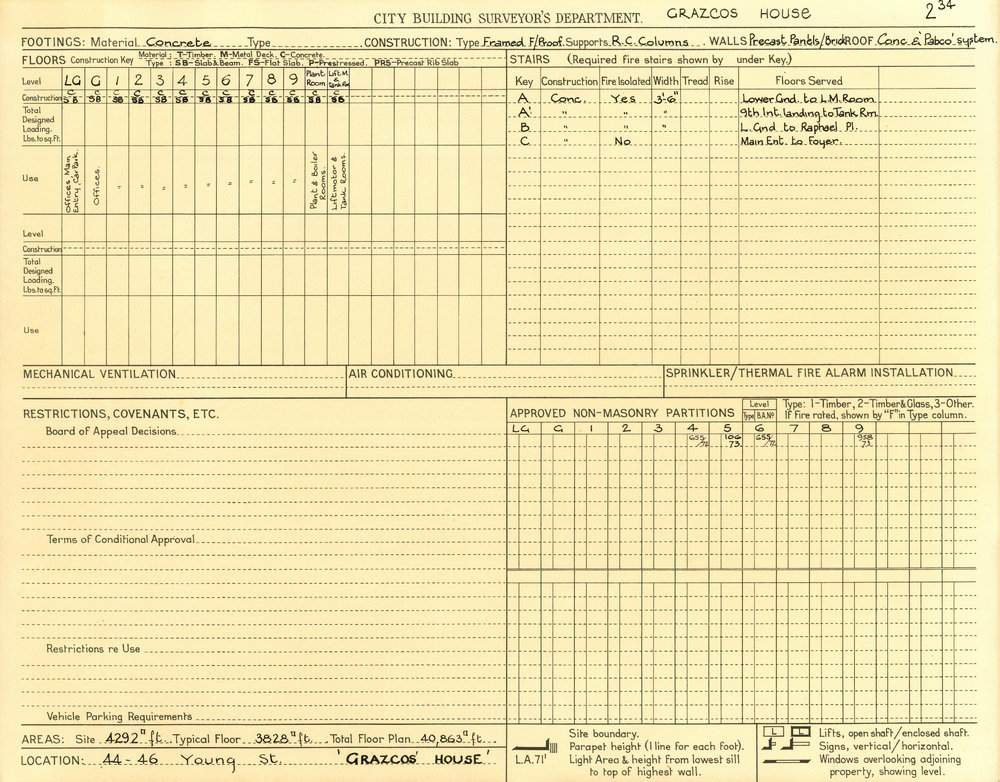 CITY BUILDING SURVEYOR'S DEPARTMENT. GRAZCOS HOUSE 234
FOOTINGS: Material Concrete Type CONSTRUCTION: Type Framed F/Proof. Supports R.C. Columns WALLS Precast Panels/Brick ROOF Conc. & 'Pabco' system.
FLOORS Construction Key Material: T-Timber. M-Metal Deck. C-Concrete.
Type: SB-Slab & Beam. FS-Flat Slab. P-Prestressed. PRS-Precast Rib Slab
Level LG G 1 2 3 4 5 6 7 8 9 Plant Room Lift M. & Tank Rm
Construction C SB C SB C SB C SB C SB C SB C SB C SB C SB C SB C SB C SB C SB
Total Designed Loading. Lbs. to sq. ft.
Use Offices Main Entry, Car Park. Offices. " " " " " " " " " Plant & Boiler Rooms. Liftmotor & Tank Rooms.
Level
Construction
Total Designed Loading. Lbs. to sq. ft.
Use
STAIRS (Required fire stairs shown by under Key.)
Key Construction Fire Isolated Width Tread Rise Floors Served
A Conc. Yes 3'-6" Lower Gnd. to L.M. Room
A' " " " 9th Int. landing to Tank Rm.
B " " " L. Gnd to Raphael Pl.
C " No Main Ent. to Foyer.
MECHANICAL VENTILATION AIR CONDITIONING SPRINKLER/THERMAL FIRE ALARM INSTALLATION
RESTRICTIONS, COVENANTS, ETC.
Board of Appeal Decisions
Terms of Conditional Approval
Restrictions re Use
Vehicle Parking Requirements
APPROVED NON-MASONRY PARTITIONS Level Type B.A.Nº Type: 1-Timber, 2-Timber & Glass, 3-Other.
If Fire rated, shown by "F" in Type column.
LG G 1 2 3 4 5 6 7 8 9
655/72 106/73 655/72 938/73
AREAS: Site 4292 □' ft. Typical Floor 3828 □' ft. Total Floor Plan 40,863 □' ft.
LOCATION: 44-46 Young St. 'GRAZCOS HOUSE'
Site boundary.
Parapet height (1 line for each foot).
L.A.71' Light Area & height from lowest sill
to top of highest wall.
L Lifts, open shaft/enclosed shaft.
Signs, vertical/horizontal.
Windows overlooking adjoining
property, showing level.